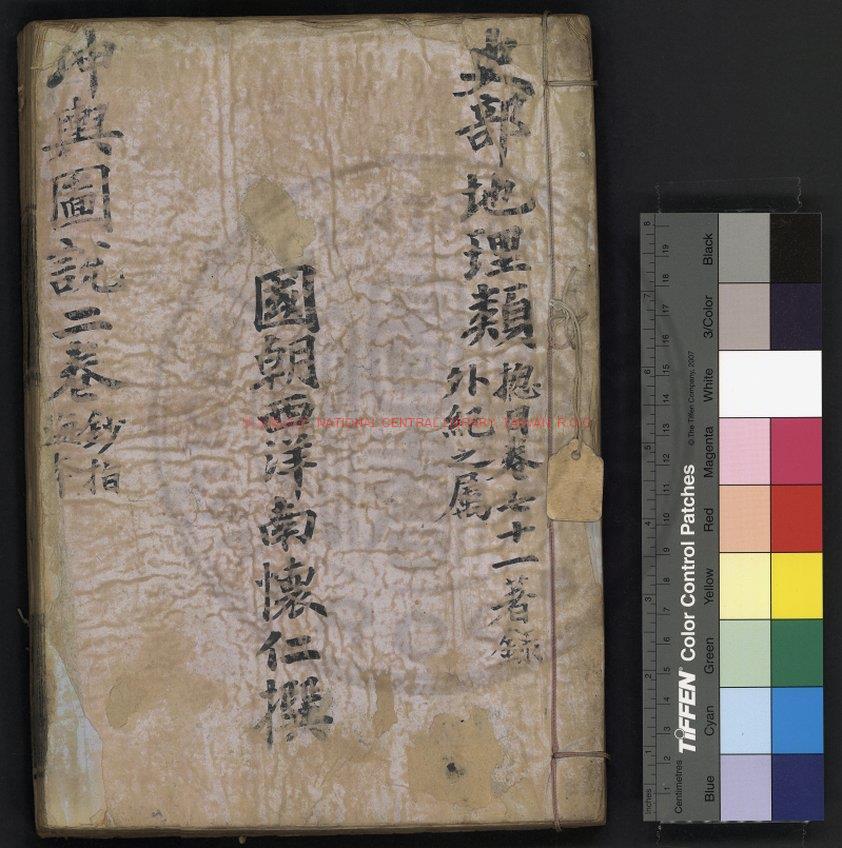 史部地理類
揔目卷七十一著錄
外紀之屬
國朝西洋南懷仁撰
坤輿圖說二卷
鈔指
NATIONAL CENTRAL LIBRARY, TAIWAN, R.O.C
Inches 1 2 3 4 5 6 7 8
Centimetres 1 2 3 4 5 6 7 8 9 10 11 12 13 14 15 16 17 18 19
TIFFEN® Color Control Patches
© The Tiffen Company, 2007
Blue Cyan Green Yellow Red Magenta White 3/Color Black